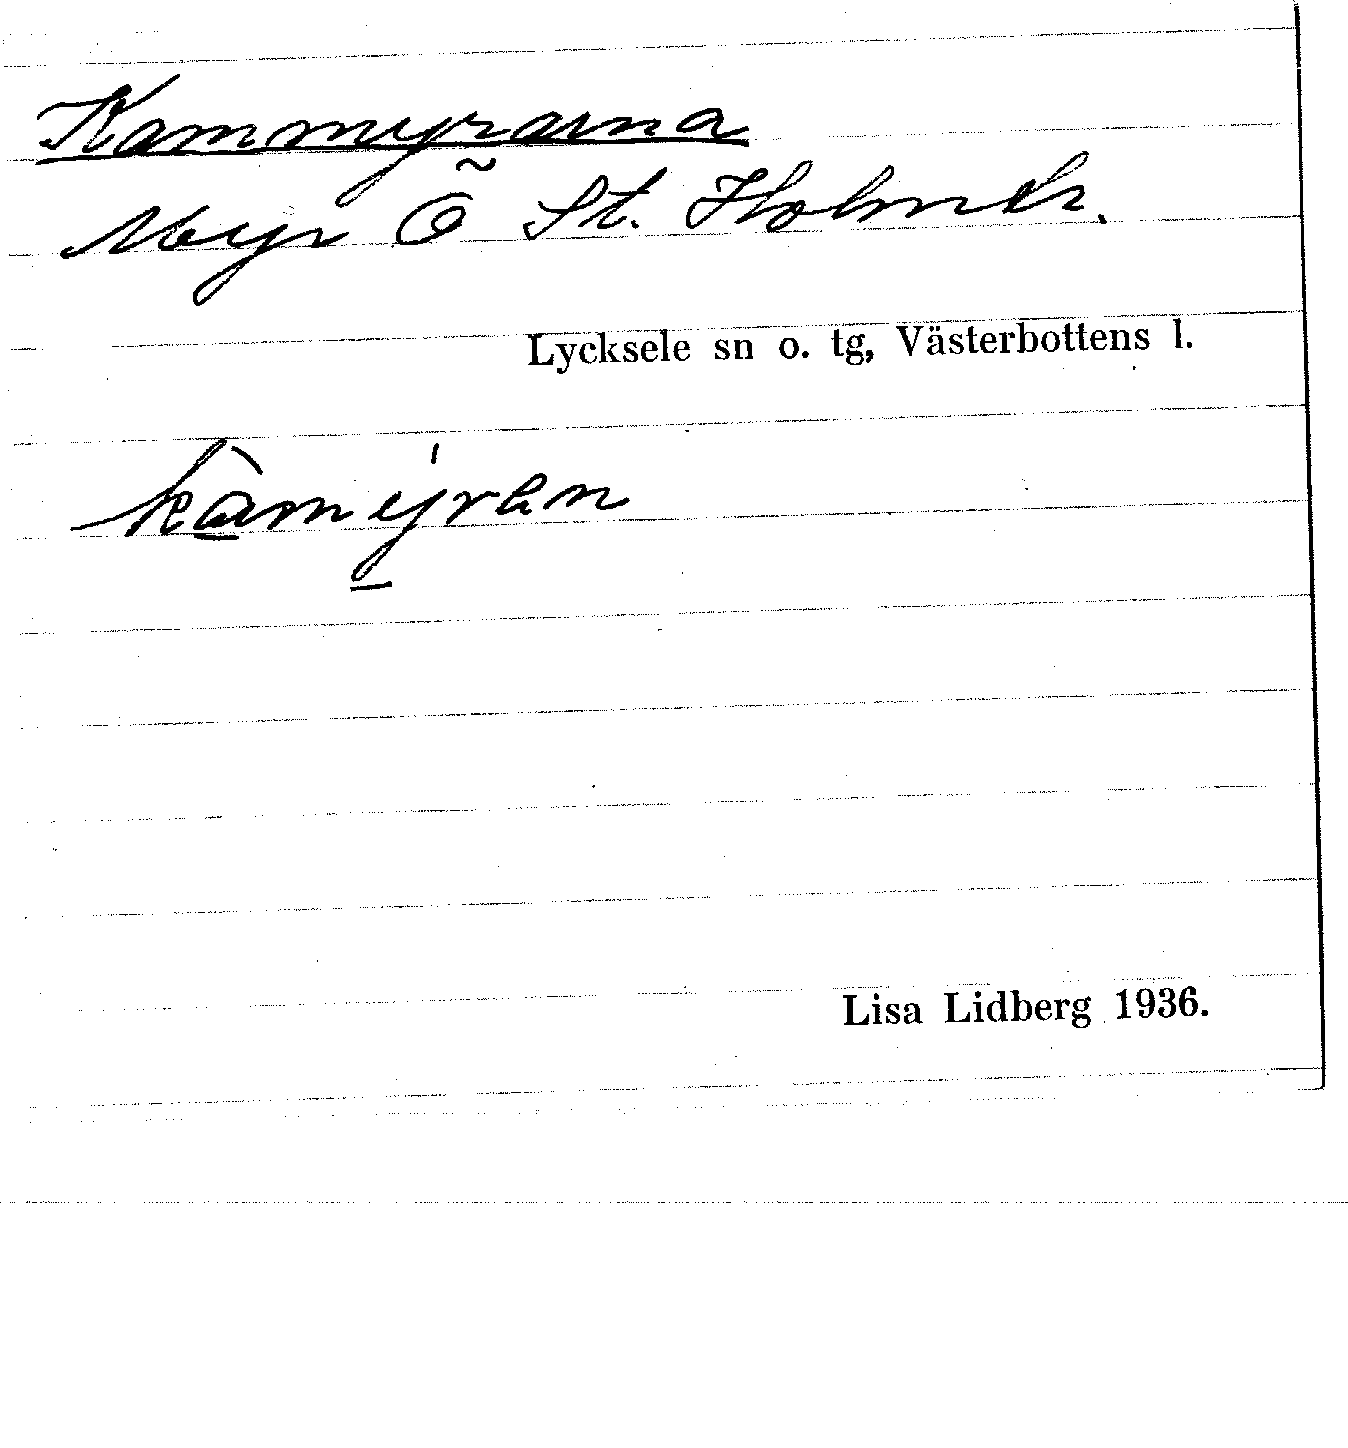 Kammyrarna
Myr Ö St. Holmtr.
Lycksele sn o. tg, Västerbottens l.
kàmýran
Lisa Lidberg 1936.